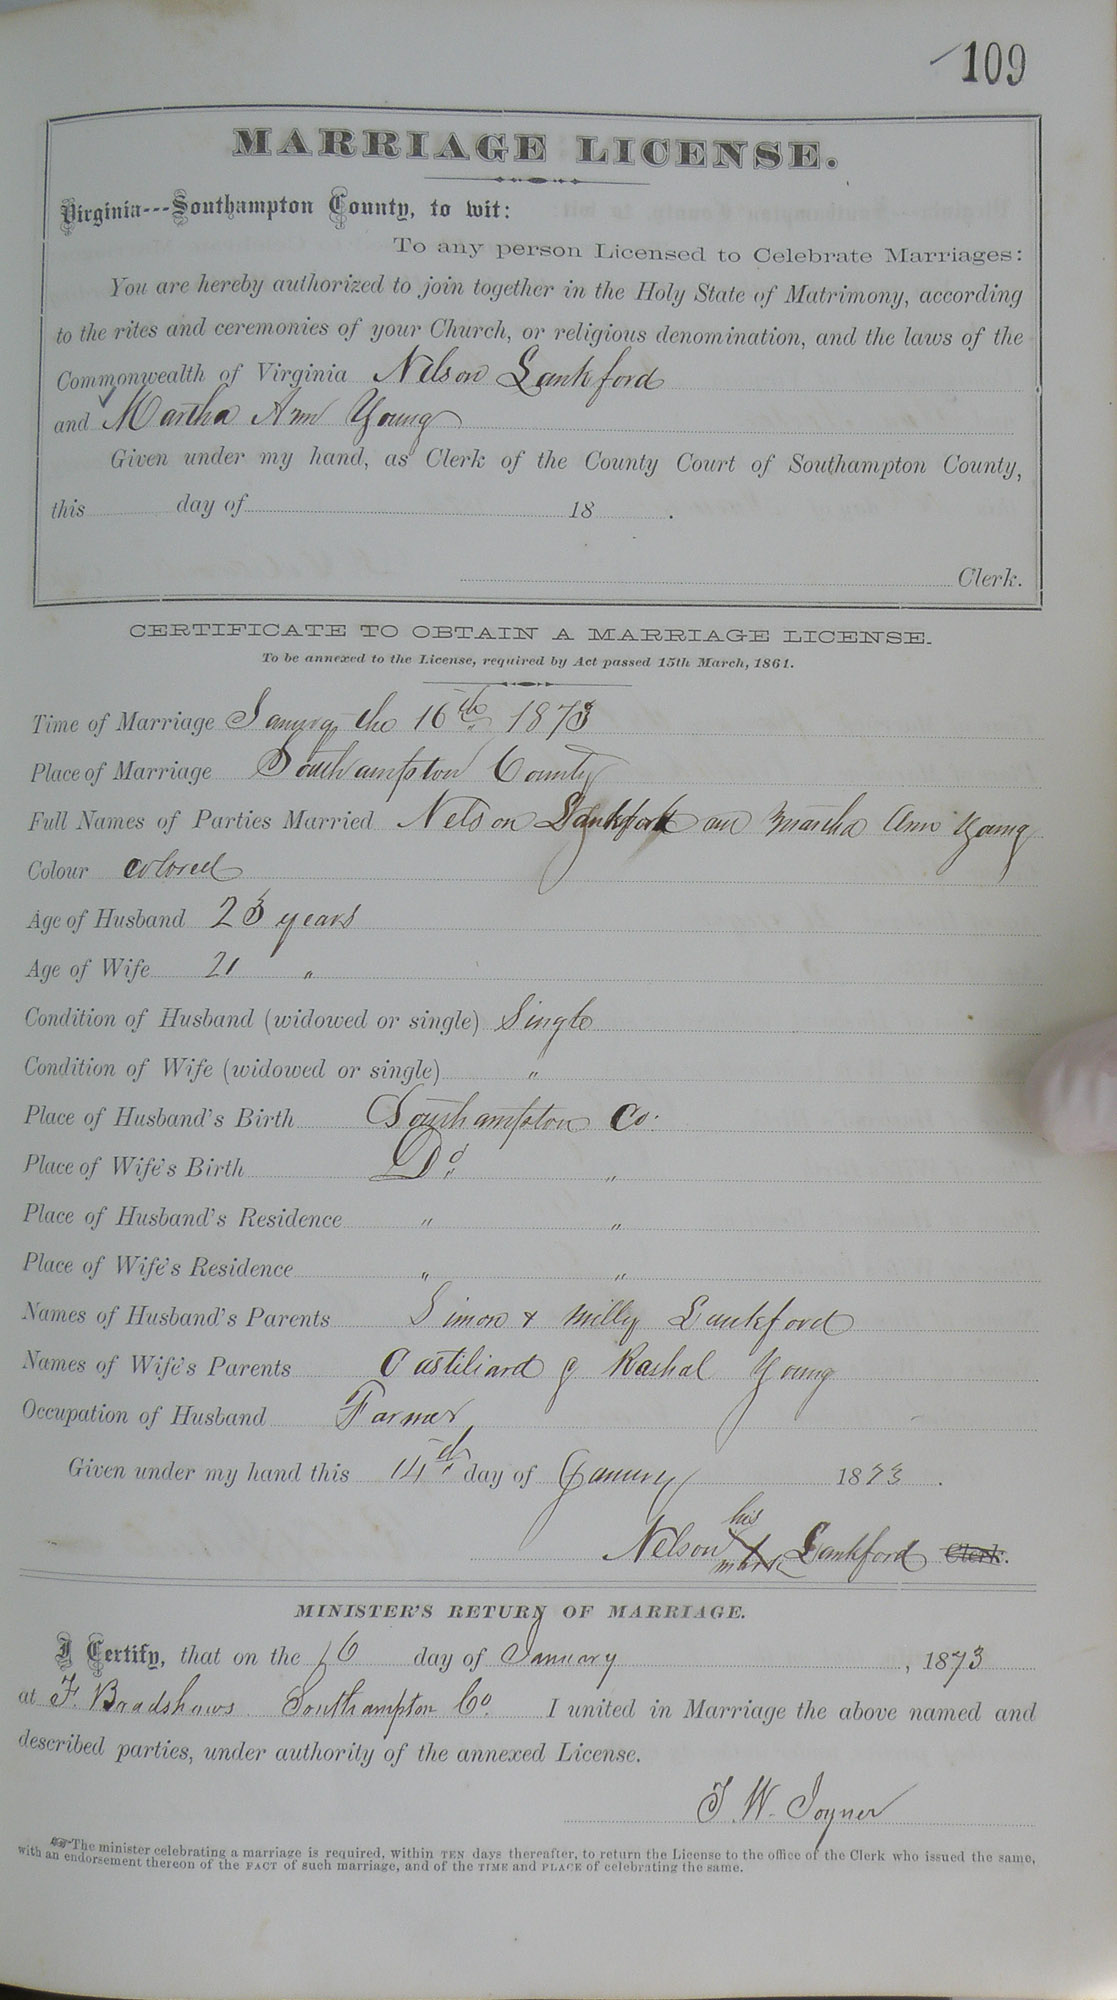 109
MARRIAGE LICENSE.
Virginia---Southampton County, to wit:
To any person Licensed to Celebrate Marriages:
You are hereby authorized to join together in the Holy State of Matrimony, according
to the rites and ceremonies of your Church, or religious denomination, and the laws of the
Commonwealth of Virginia Nelson Lankford
and Martha Ann Young
Given under my hand, as Clerk of the County Court of Southampton County,
this day of 18 .
Clerk.
CERTIFICATE TO OBTAIN A MARRIAGE LICENSE.
To be annexed to the License, required by Act passed 15th March, 1861.
Time of Marriage the 16th 1873
Place of Marriage Southampton County
Full Names of Parties Married Nelson Lankford an Martha Ann Young
Colour colored
Age of Husband 23 years
Age of Wife 21 "
Condition of Husband (widowed or single) Single
Condition of Wife (widowed or single) "
Place of Husband's Birth Southampton Co.
Place of Wife's Birth Do "
Place of Husband's Residence " "
Place of Wife's Residence " "
Names of Husband's Parents Simon & Milly Lankford
Names of Wife's Parents Rashal Young
Occupation of Husband Farmer
Given under my hand this 14th day of 1873 .
his
Nelson X Lankford Clerk.
mark
MINISTER'S RETURN OF MARRIAGE.
I Certify, that on the 16 day of January , 1873
at F. Bradshaws Southampton Co. I united in Marriage the above named and
described parties, under authority of the annexed License.
J. W. Joyner
The minister celebrating a marriage is required, within TEN days thereafter, to return the License to the office of the Clerk who issued the same,
with an endorsement thereon of the FACT of such marriage, and of the TIME and PLACE of celebrating the same.